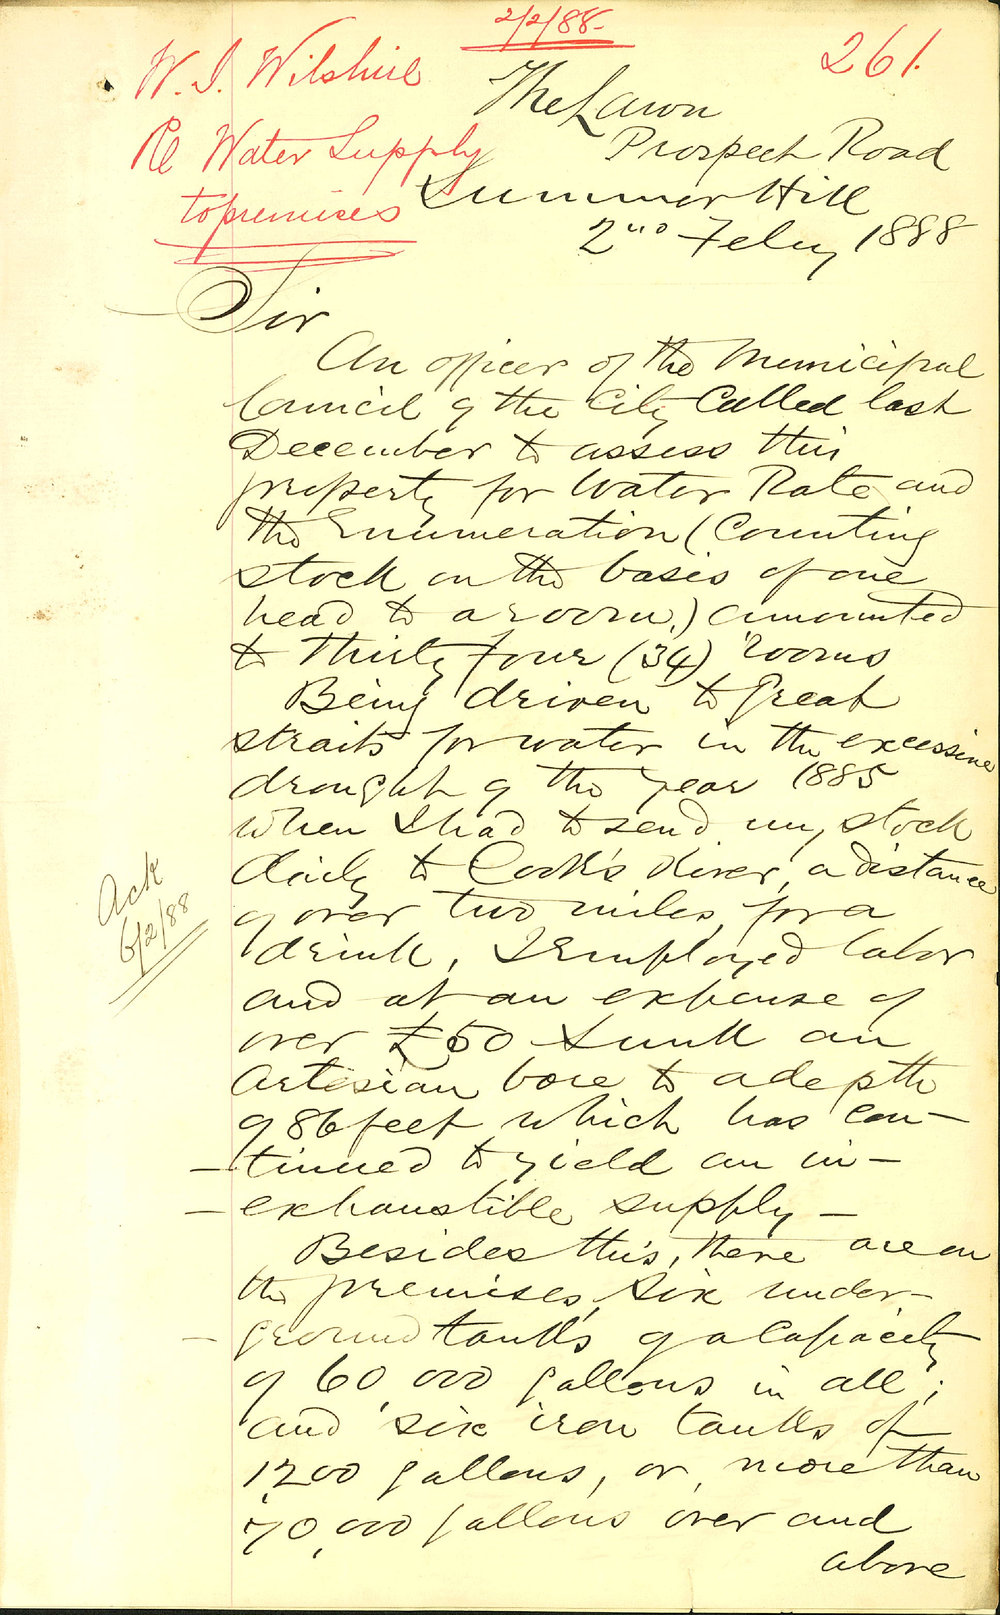 2/2/88
261.
W. J. Wilshire
Re Water Supply
to premises
The Lawn
Prospect Road
Summer Hill
2nd Feby 1888
Sir
An officer of the Municipal
Council of the City Called last
December to assess this
property for Water Rate and
the Enumeration (Counting
stock on the basis of one
head to a room.) amounted
to Thirty four (34) rooms
Being driven to great
straits for water in the excessive
drought of the year 1885
when I had to send my stock
daily to Cook's River, a distance
of over two miles, for a
drink, I Employed labor
and at an expense of
over £50 Sunk an
Artesian bore to a depth
of 86 feet which has con-
-tinued to yield an in-
-exhaustible supply -
Besides this, there are on
the premises, six under-
-ground tanks of a Capacity
of 60,000 gallons in all;
and six iron tanks of
1,200 gallons, or more than
70,000 gallons over and
above
Ack
6/2/88